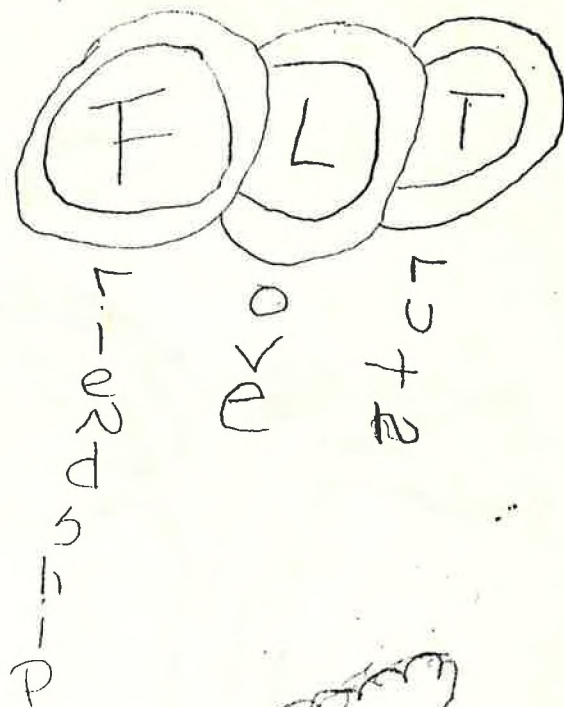 Friendship
Love
Truth